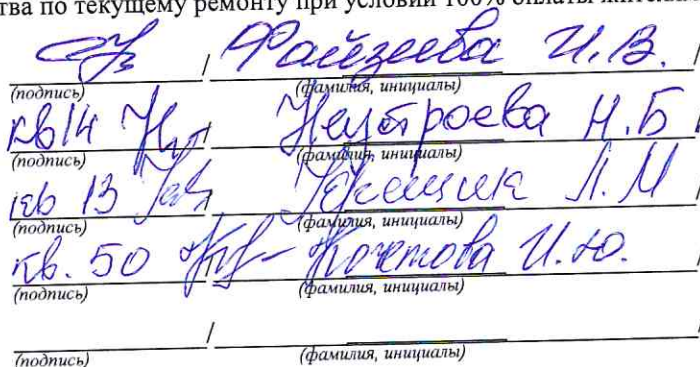 тва по текущему ремонту при условии 100% оплаты жителям
/ Файзеева И.В. /
(подпись) (фамилия, инициалы)
кв 14 / Неустроева Н.Б /
(подпись) (фамилия, инициалы)
кв 13 / Л.М /
(подпись) (фамилия, инициалы)
кв. 50 / Кочетова И.Ю. /
(подпись) (фамилия, инициалы)
/ /
(подпись) (фамилия, инициалы)